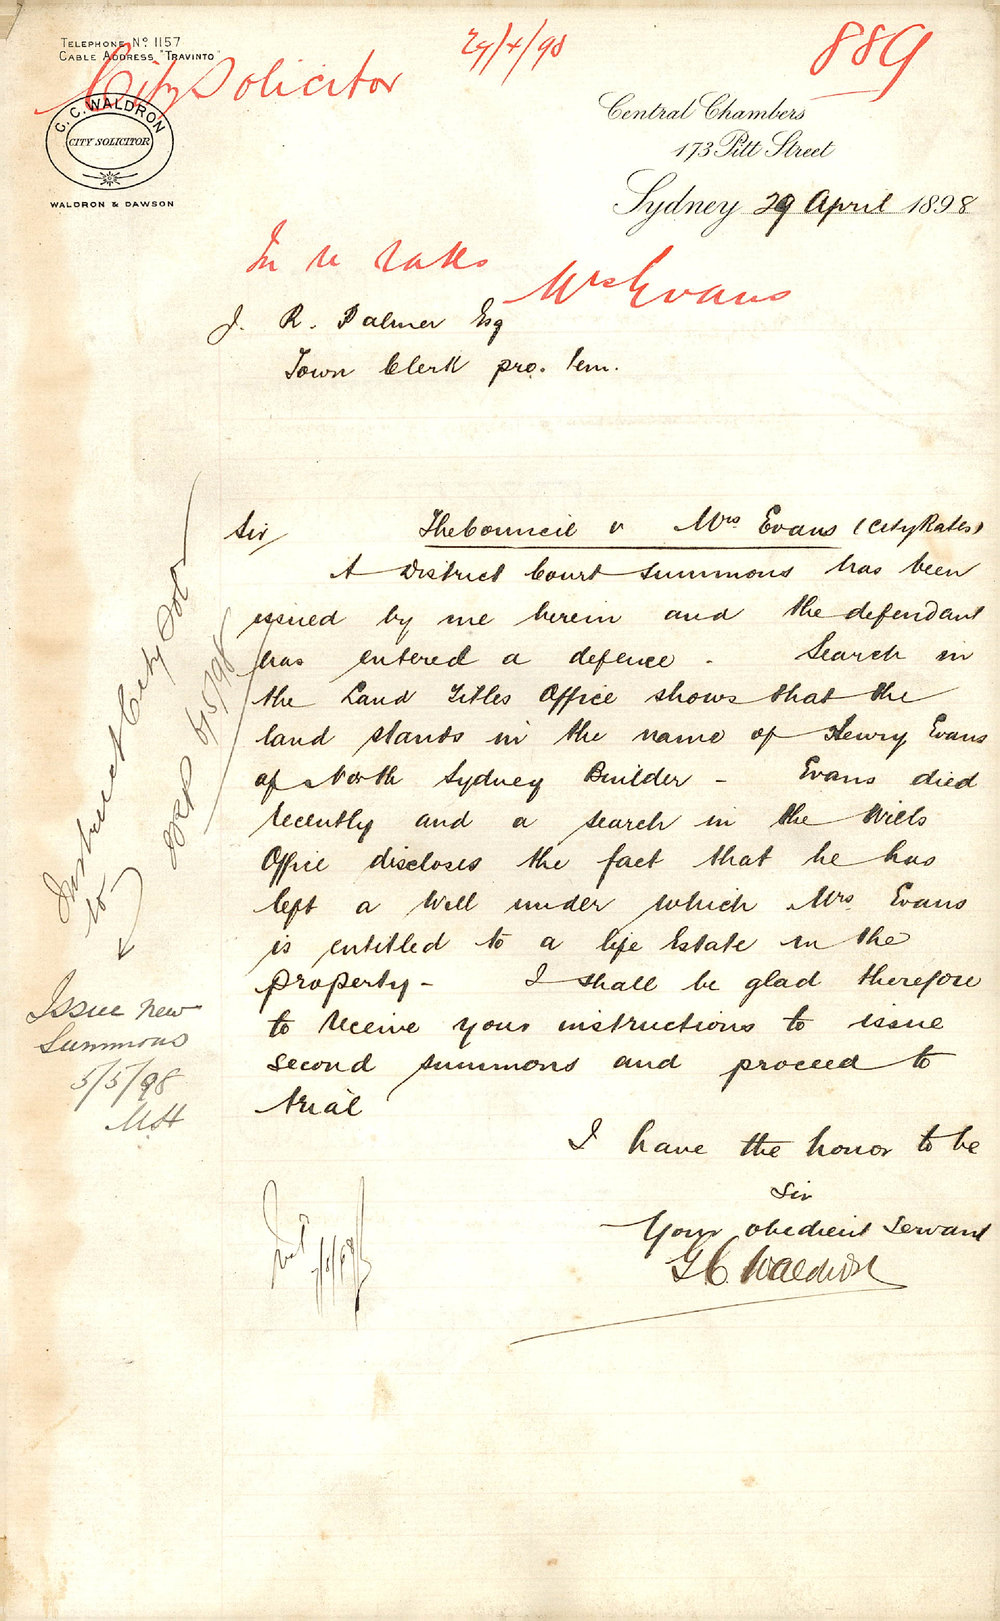 TELEPHONE No 1157
CABLE ADDRESS "TRAVINTO"
City Solicitor
29/4/98
889
C. C. WALDRON
CITY SOLICITOR
WALDRON & DAWSON
Central Chambers
173 Pitt Street
Sydney 29 April 1898
In re rates
Mrs Evans
J. R. Palmer Esq
Town Clerk pro. tem.
Sir/ The Council v Mrs Evans (City Rates)
A District Court summons has been
issued by me herein and the defendant
has entered a defence - Search in
the Land Titles Office shows that the
land stands in the name of Henry Evans
of North Sydney Builder - Evans died
recently and a search in the Wills
Office discloses the fact that he has
left a Will under which Mrs. Evans
is entitled to a life Estate in the
property - I shall be glad therefore
to receive your instructions to issue
second summons and proceed to
trial
I have the honor to be
Sir
Your obedient servant
G C Waldron
Instruct City Solr
to
JRP 6/5/98
Issue new
Summons
5/5/98